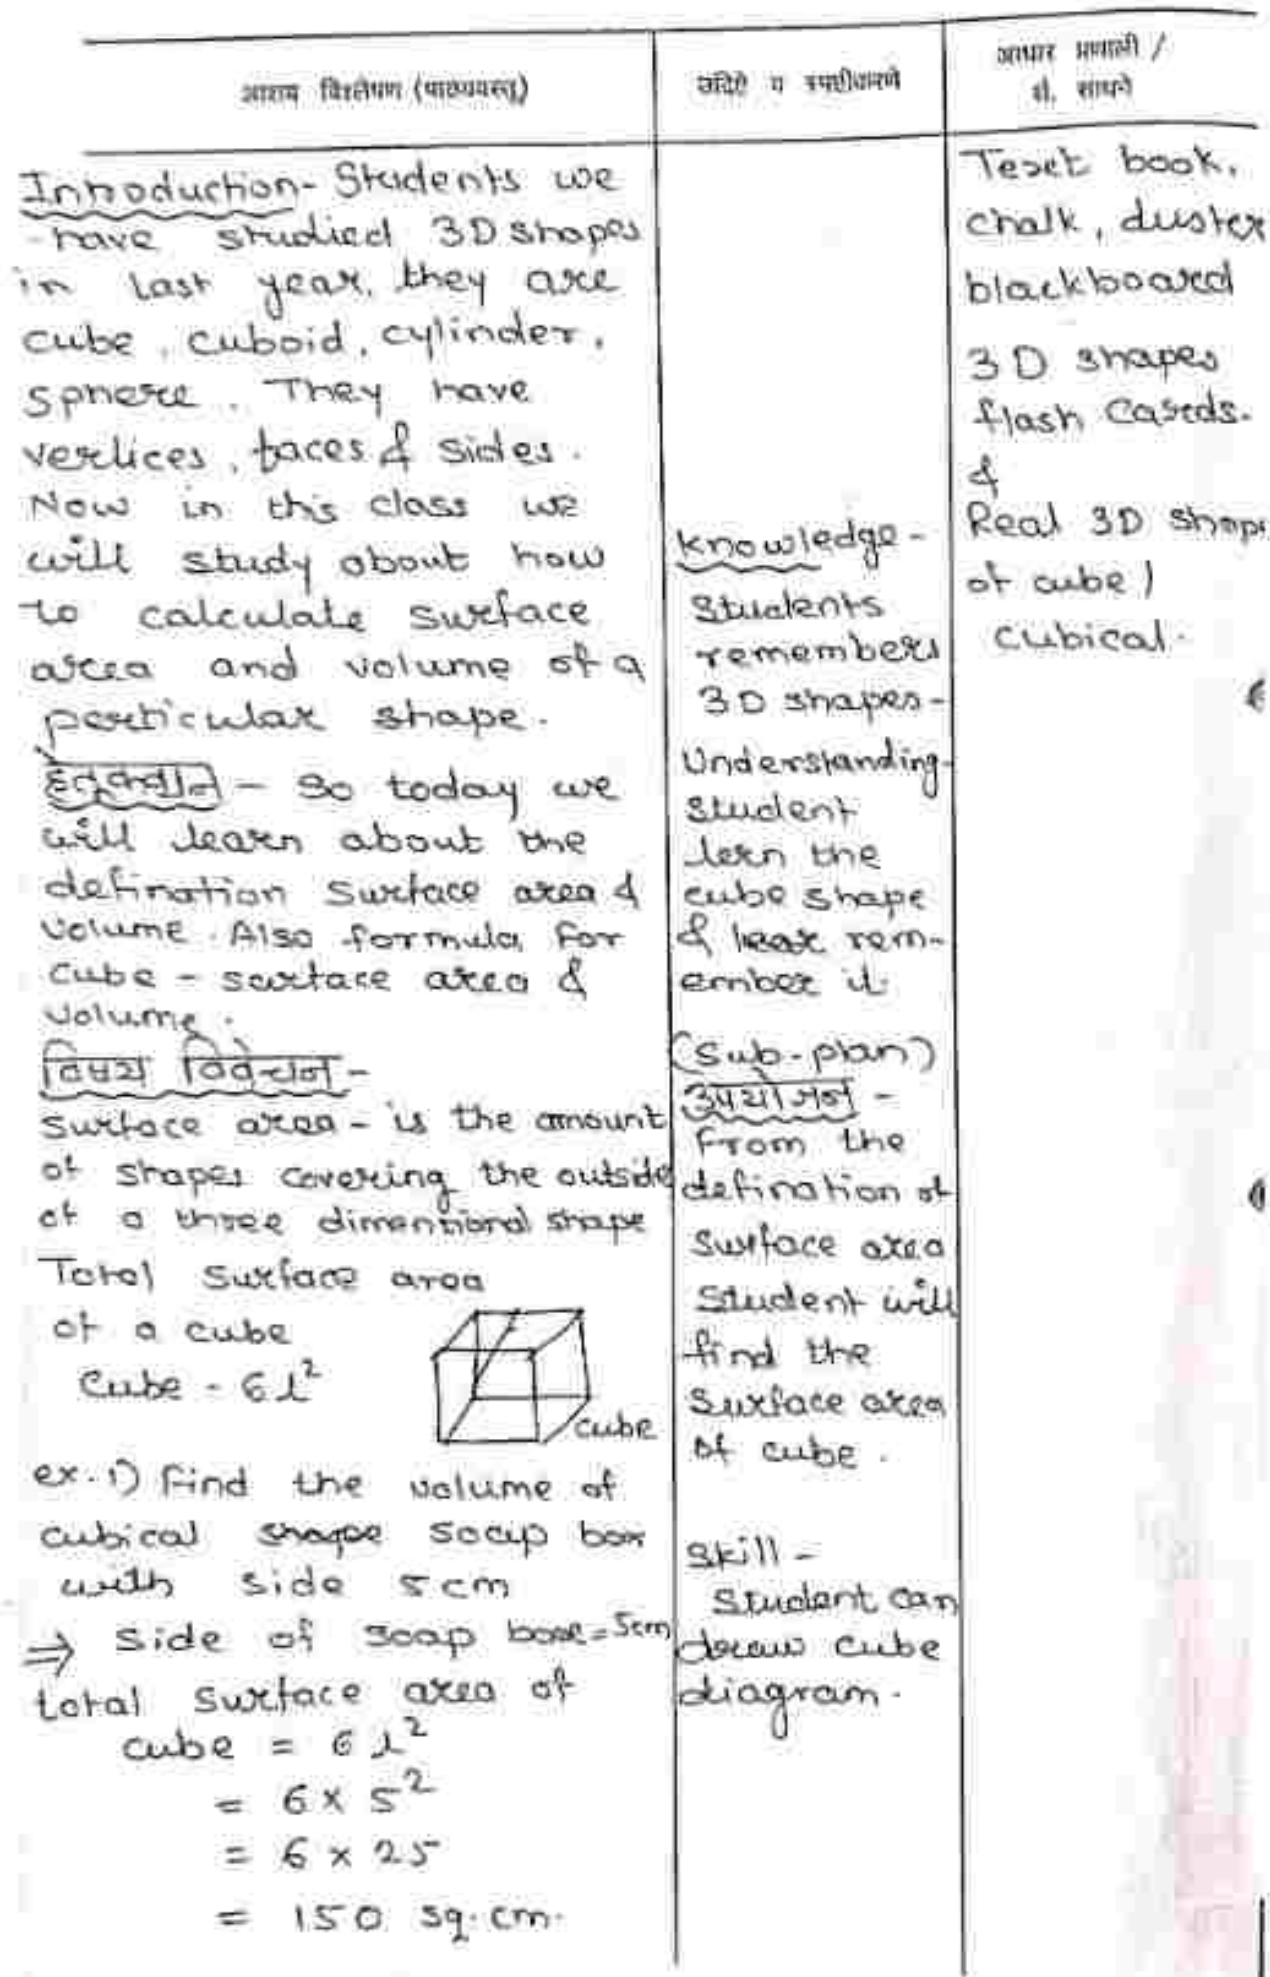 आशय विश्लेषण (पाठ्यवस्तू)
उदिष्टे व स्पष्टीकरणे
आधार प्रणाली /
शै. साधने
Introduction - Students we
have studied 3D shapes
in last year, they are
cube, cuboid, cylinder,
sphere. They have
vertices, faces & sides.
Now in this class we
will study about how
to calculate surface
area and volume of a
perticular shape.
हेतूकथन - So today we
will learn about the
defination surface area &
volume. Also formula for
cube - surface area &
volume.
विषय विवेचन -
surface area - is the amount
of shapes covering the outside
of a three dimentional shape
Total surface area
of a cube
cube - 6l²
cube
ex. 1) find the volume of
cubical shape soap box
with side 5 cm
⇒ side of soap box = 5cm
total surface area of
cube = 6l²
= 6 x 5²
= 6 x 25
= 150 sq. cm.
Knowledge -
Students
remembers
3D shapes -
Understanding -
student
lern the
cube shape
& rem-
ember it.
(sub-plan)
उपयोजन -
From the
defination of
surface area
student will
find the
surface area
of cube.
Skill -
Student can
draw cube
diagram.
Text book,
chalk, duster
blackboard
3D shapes
flash cards.
&
Real 3D shape
of cube /
cubical.